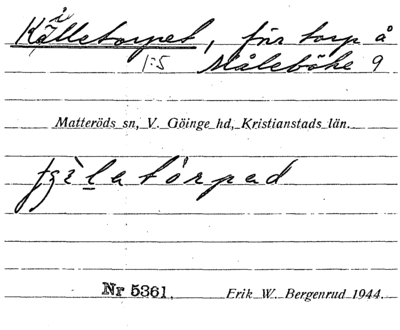 Källetorpet, för torp å
1:5 Måleböke 9
Matteröds sn, V. Göinge hd, Kristianstads län.
Nr 5361. Erik W. Bergenrud 1944.